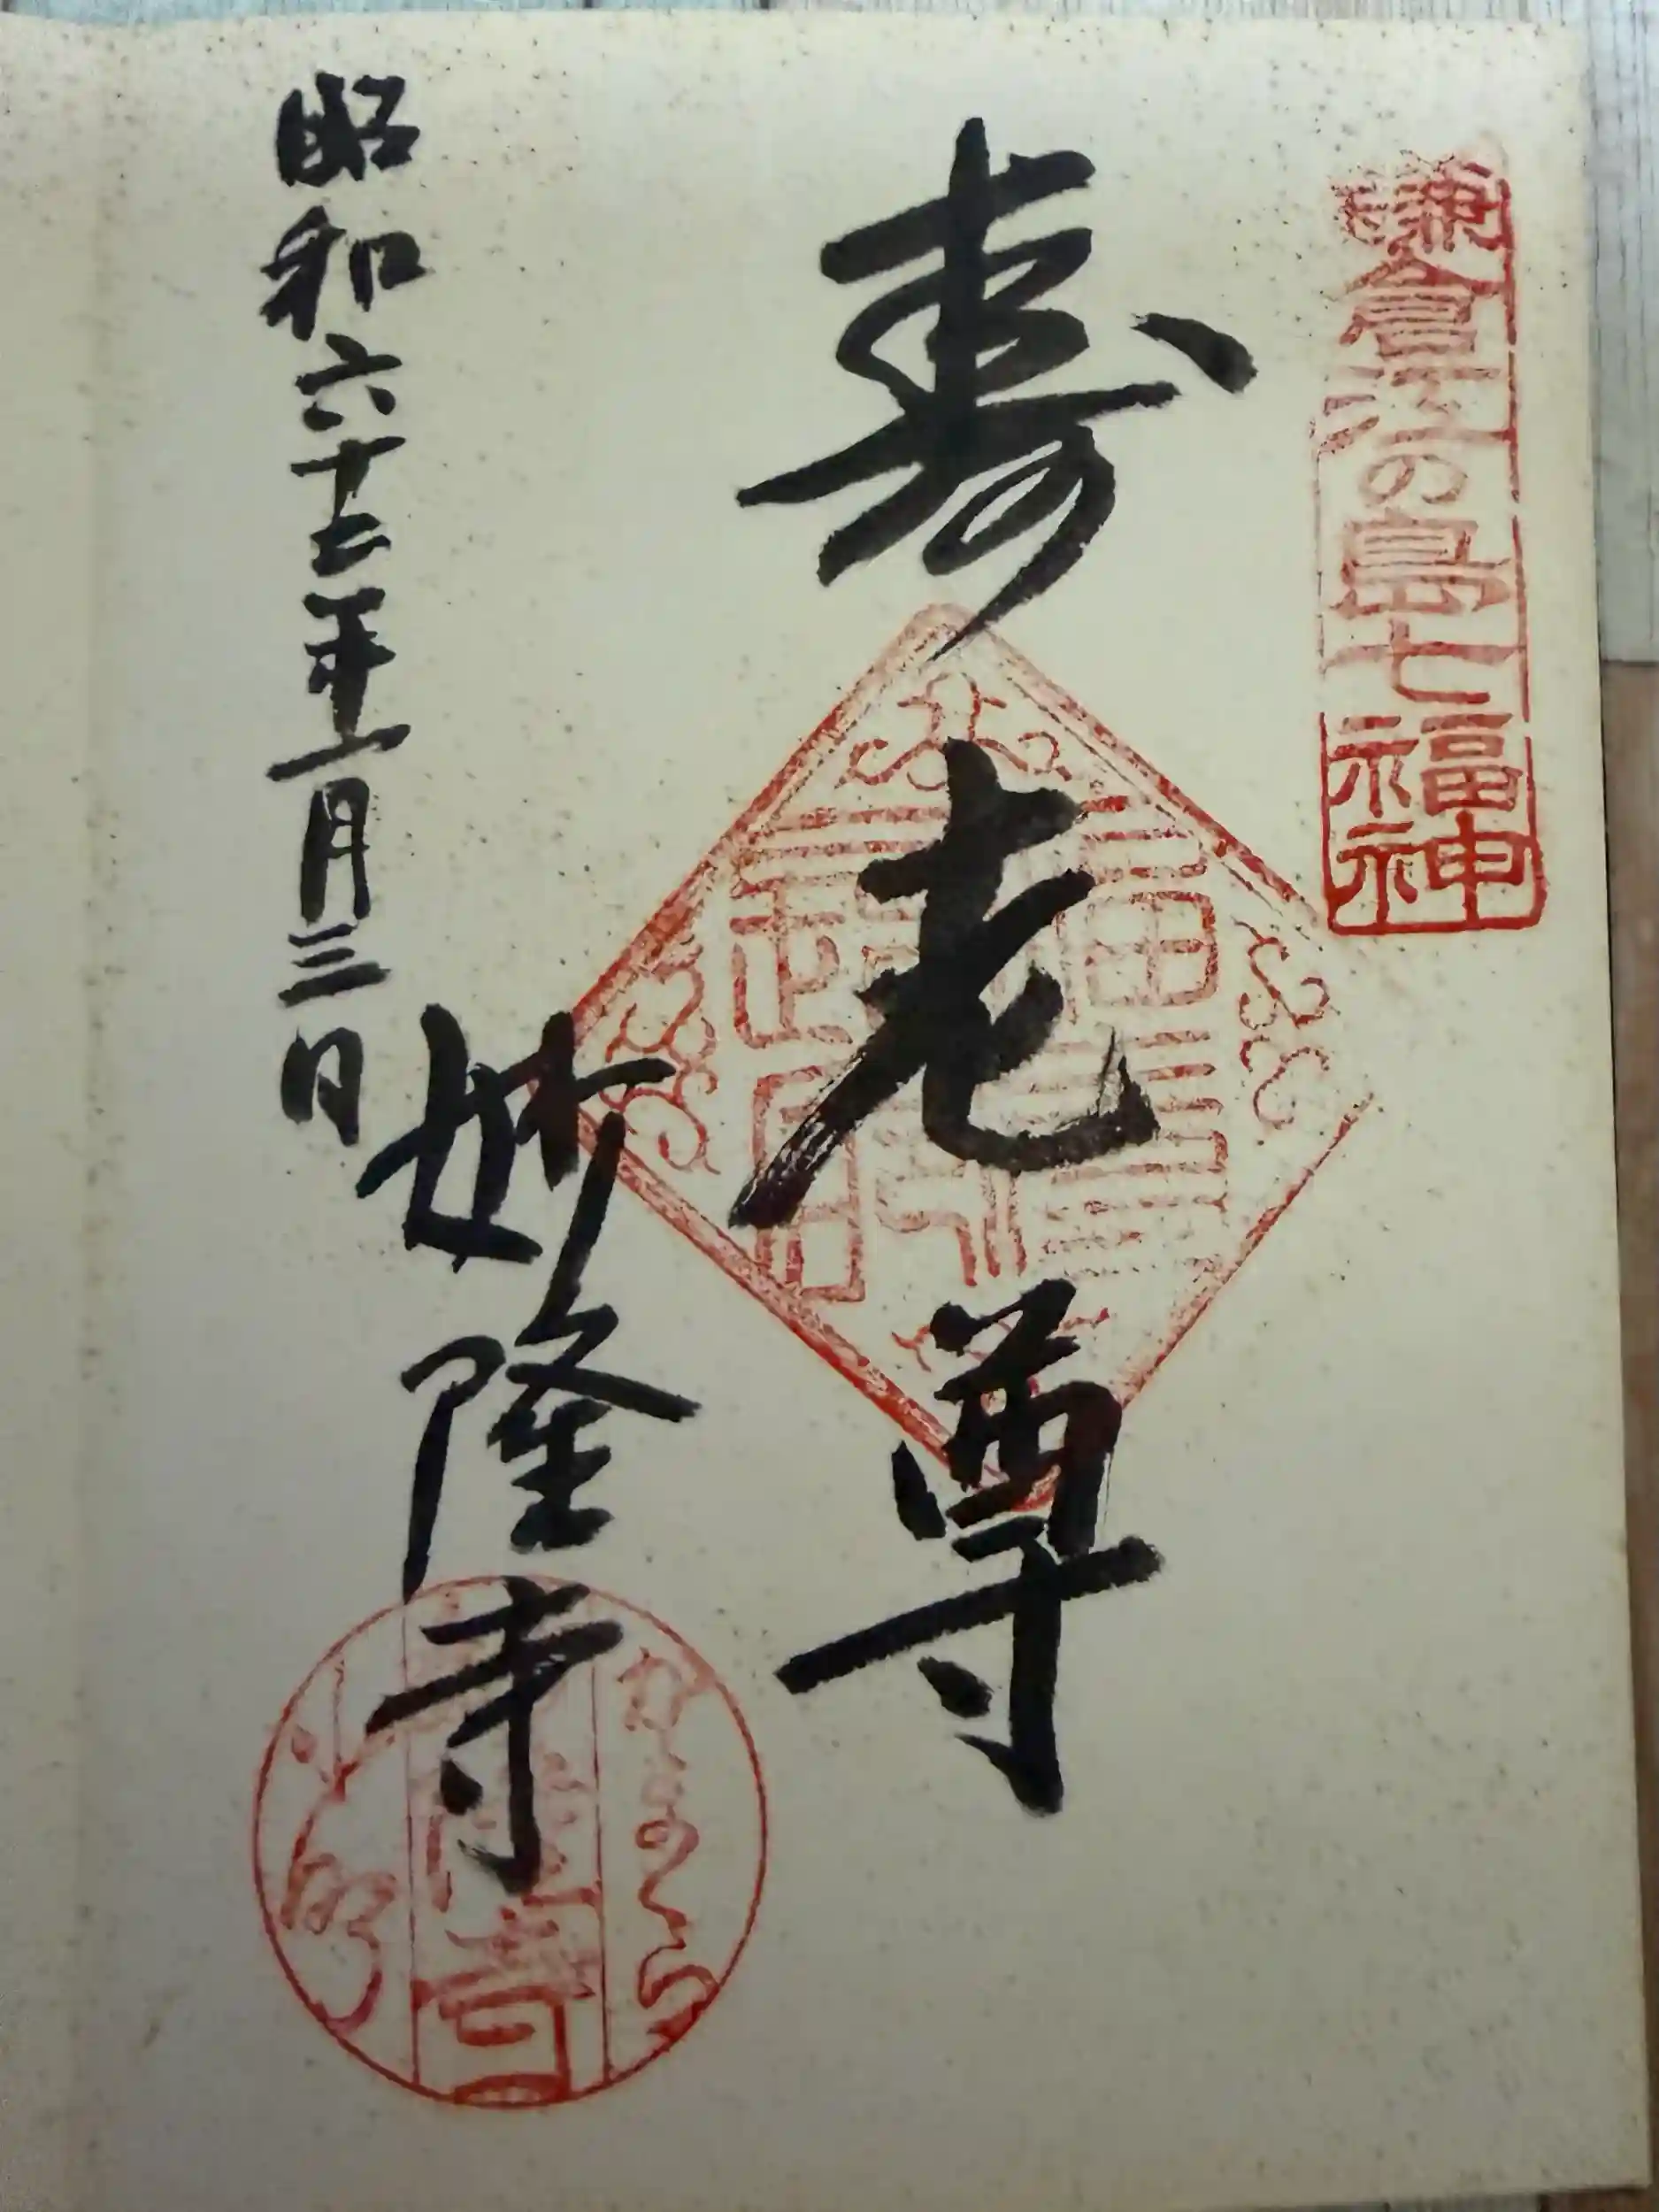 鎌倉江の島七福神
寿老尊
妙隆寺
昭和六十二年一月三日
かまくら
小町